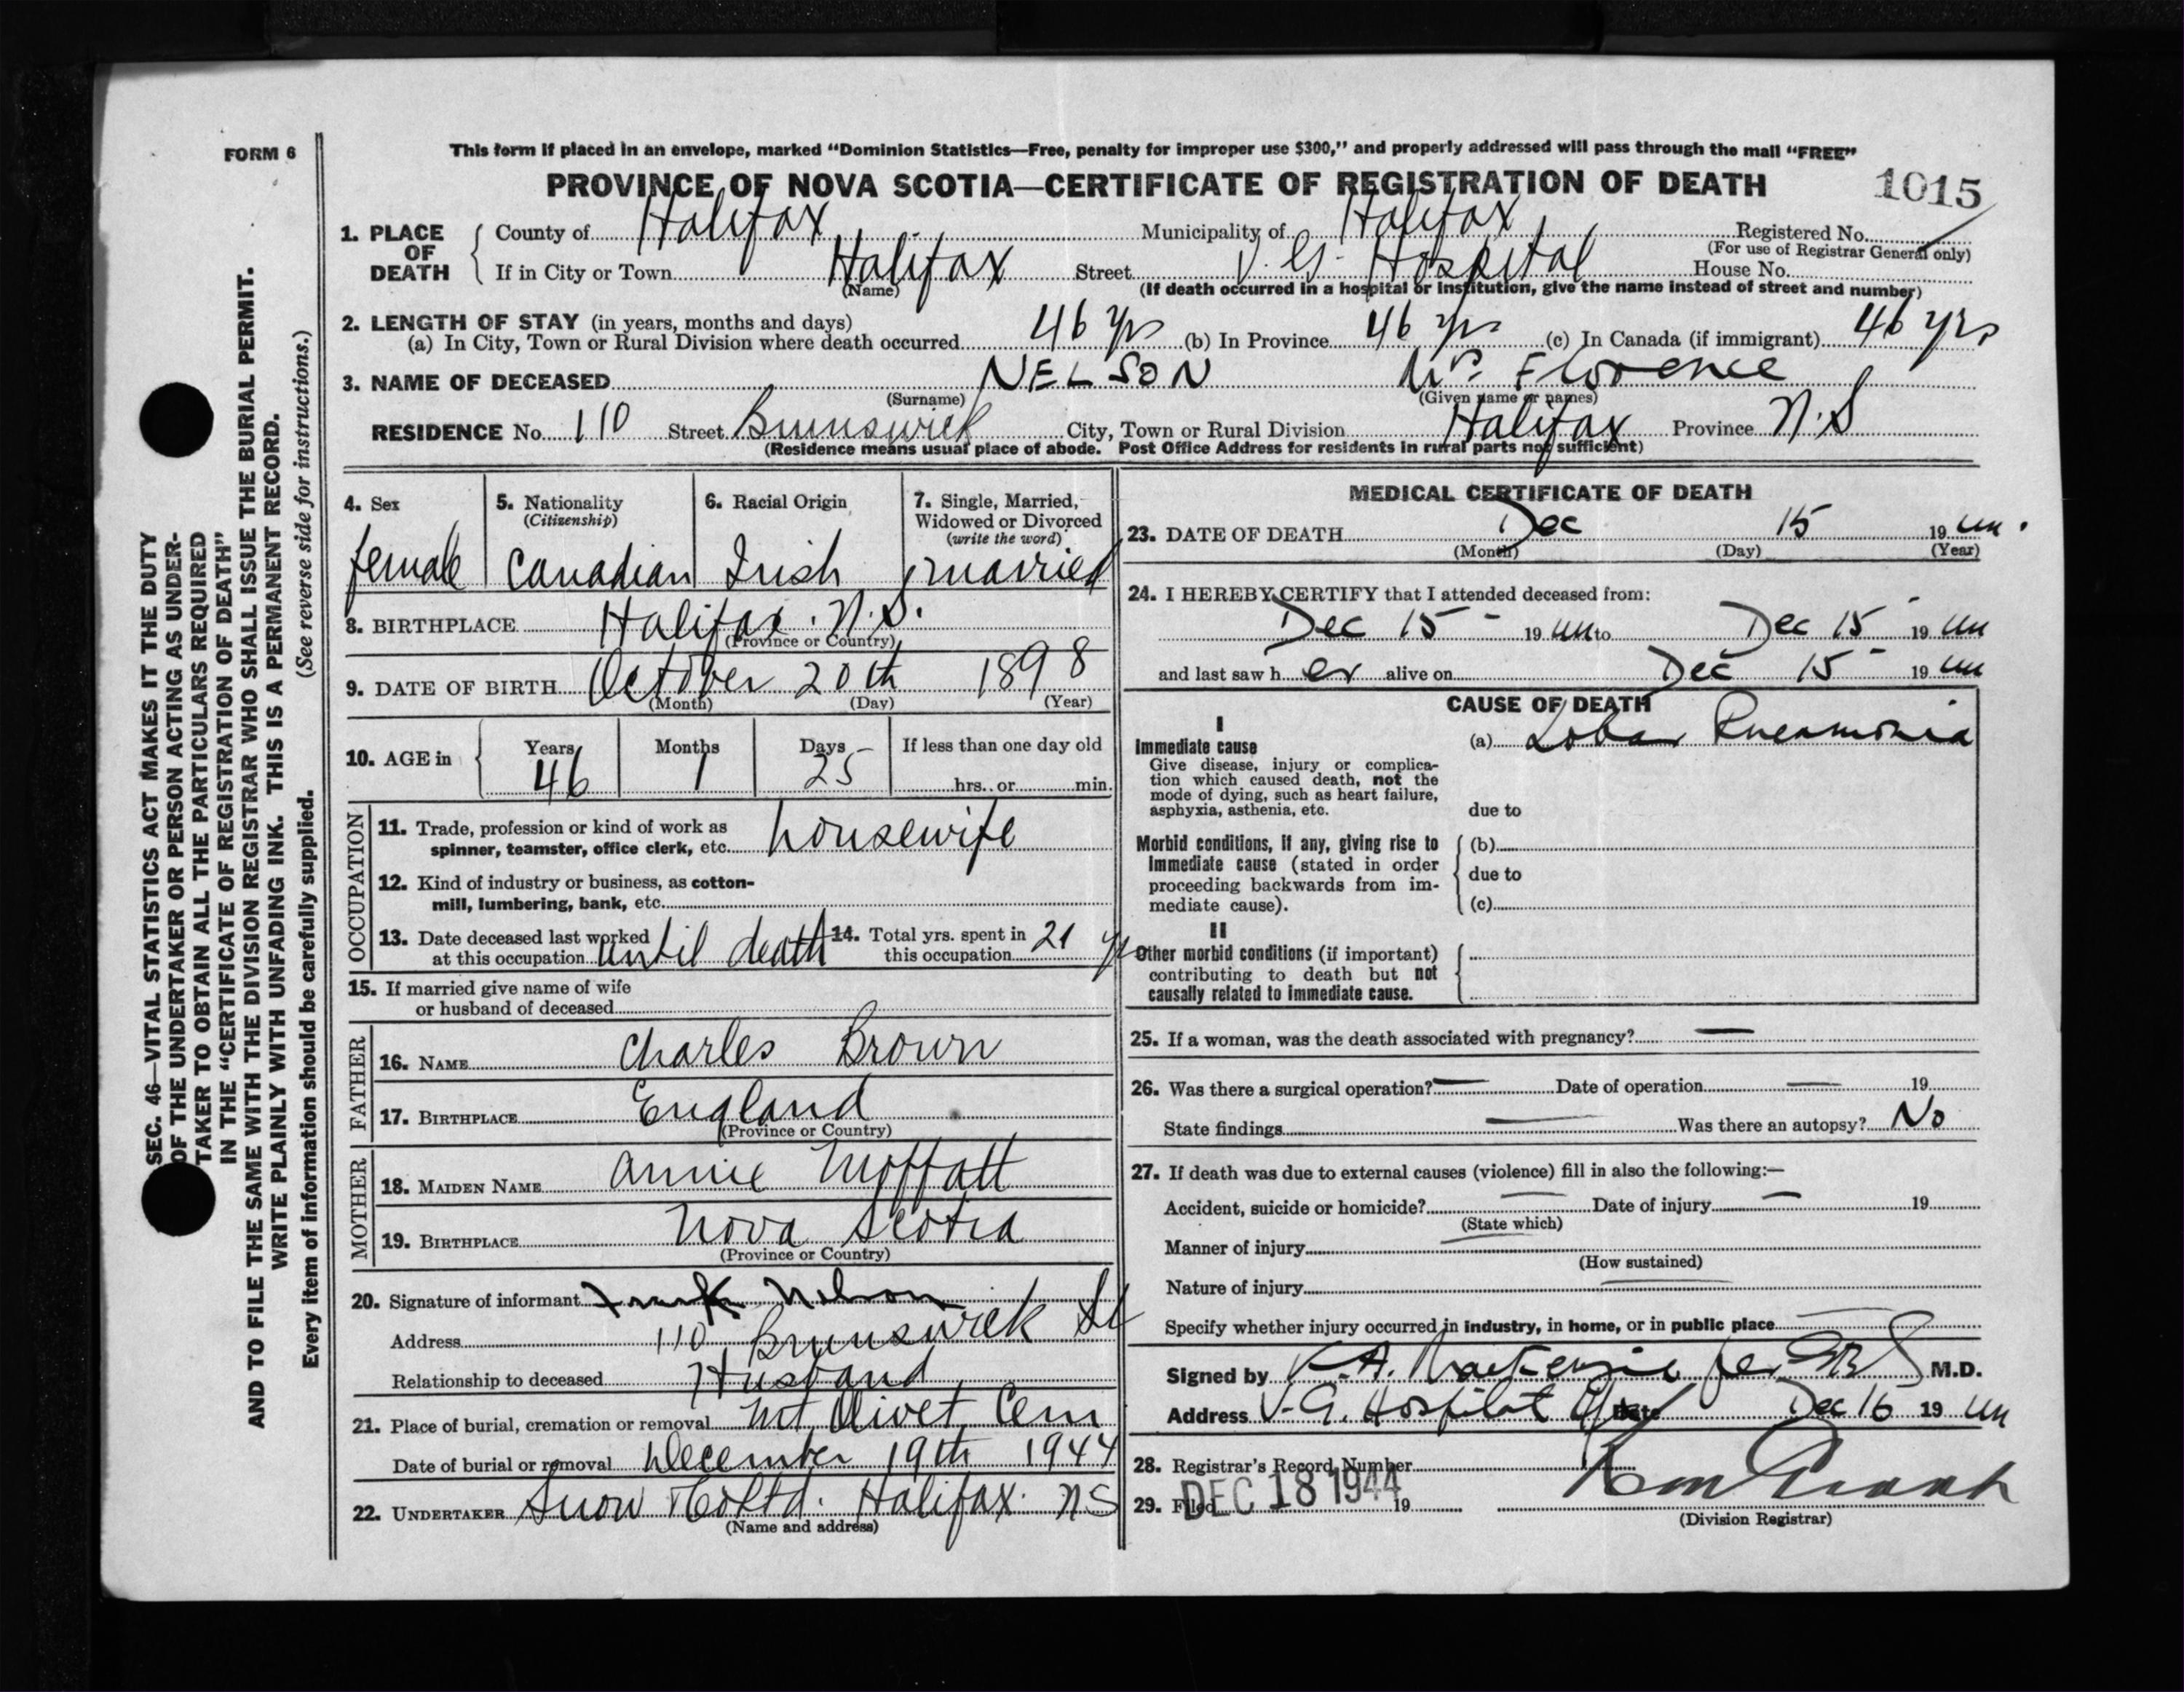 FORM 6
This form if placed in an envelope, marked “Dominion Statistics—Free, penalty for improper use $300,” and properly addressed will pass through the mail “FREE”
PROVINCE OF NOVA SCOTIA—CERTIFICATE OF REGISTRATION OF DEATH 1015
1. PLACE OF DEATH
County of Halifax Municipality of Halifax Registered No.
(For use of Registrar General only)
If in City or Town Halifax Street V. G. Hospital House No.
(Name) (If death occurred in a hospital or institution, give the name instead of street and number)
2. LENGTH OF STAY (in years, months and days)
(a) In City, Town or Rural Division where death occurred 46 yrs (b) In Province 46 yrs (c) In Canada (if immigrant) 46 yrs
3. NAME OF DECEASED NELSON Mrs. Florence
(Surname) (Given name or names)
RESIDENCE No. 110 Street Brunswick City, Town or Rural Division Halifax Province N.S
(Residence means usual place of abode. Post Office Address for residents in rural parts not sufficient)
4. Sex
female
5. Nationality
(Citizenship)
Canadian
6. Racial Origin
Irish
7. Single, Married,
Widowed or Divorced
(write the word)
married
8. BIRTHPLACE Halifax. N.S.
(Province or Country)
9. DATE OF BIRTH October 20th 1898
(Month) (Day) (Year)
10. AGE in Years 46 Months 1 Days 25 If less than one day old
hrs. or min.
OCCUPATION
11. Trade, profession or kind of work as
spinner, teamster, office clerk, etc. housewife
12. Kind of industry or business, as cotton-
mill, lumbering, bank, etc.
13. Date deceased last worked
at this occupation until death
14. Total yrs. spent in
this occupation 21 yrs
15. If married give name of wife
or husband of deceased
FATHER
16. NAME Charles Brown
17. BIRTHPLACE England
(Province or Country)
MOTHER
18. MAIDEN NAME Annie Moffatt
19. BIRTHPLACE Nova Scotia
(Province or Country)
20. Signature of informant Frank Nelson
Address 110 Brunswick St
Relationship to deceased Husband
21. Place of burial, cremation or removal Mt Olivet Cem
Date of burial or removal December 19th 1944
22. UNDERTAKER Snow & Co Ltd. Halifax. NS
(Name and address)
MEDICAL CERTIFICATE OF DEATH
23. DATE OF DEATH Dec 15 19 44.
(Month) (Day) (Year)
24. I HEREBY CERTIFY that I attended deceased from:
Dec 15 - 19 44 to Dec 15 19 44
and last saw h er alive on Dec 15 - 19 44
CAUSE OF DEATH
I
Immediate cause
Give disease, injury or complica-
tion which caused death, not the
mode of dying, such as heart failure,
asphyxia, asthenia, etc.
(a) Lobar Pneumonia
due to
Morbid conditions, if any, giving rise to
immediate cause (stated in order
proceeding backwards from im-
mediate cause).
(b)
due to
(c)
II
Other morbid conditions (if important)
contributing to death but not
causally related to immediate cause.
25. If a woman, was the death associated with pregnancy? —
26. Was there a surgical operation? — Date of operation — 19
State findings — Was there an autopsy? No
27. If death was due to external causes (violence) fill in also the following:—
Accident, suicide or homicide? — Date of injury — 19
(State which)
Manner of injury
(How sustained)
Nature of injury
Specify whether injury occurred in industry, in home, or in public place
Signed by A. MacKenzie M.D.
Address V.G. Hospital Date Dec 16 19 44
28. Registrar's Record Number
29. Filed DEC 18 1944 19
(Division Registrar)
SEC. 46—VITAL STATISTICS ACT MAKES IT THE DUTY
OF THE UNDERTAKER OR PERSON ACTING AS UNDER-
TAKER TO OBTAIN ALL THE PARTICULARS REQUIRED
IN THE “CERTIFICATE OF REGISTRATION OF DEATH”
AND TO FILE THE SAME WITH THE DIVISION REGISTRAR WHO SHALL ISSUE THE BURIAL PERMIT.
WRITE PLAINLY WITH UNFADING INK. THIS IS A PERMANENT RECORD.
Every item of information should be carefully supplied. (See reverse side for instructions.)